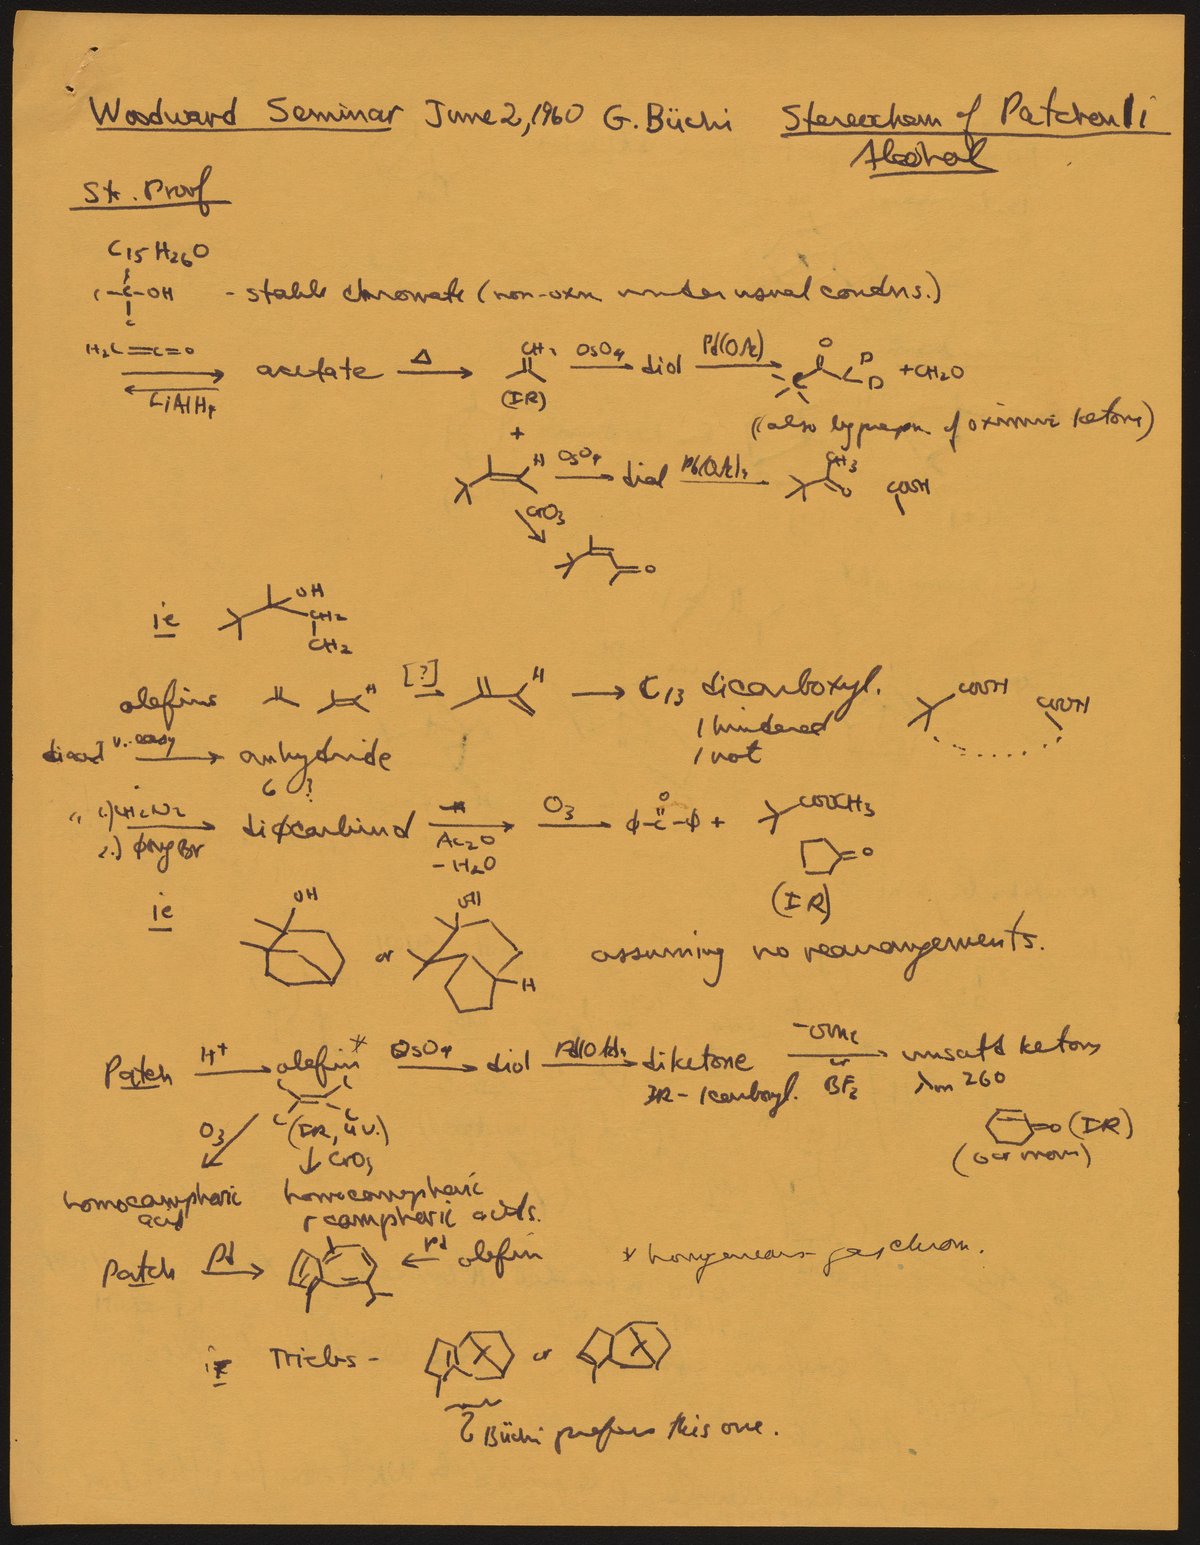 Woodward Seminar June 2, 1960 G. Büchi Stereochem of Patchouli
Alcohol
St. Proof
C15H26O
-C-OH - stable chromate (non-oxn under usual condns.)
c
H2C=C=O
LiAlH4
acetate Δ CH2 OsO4 diol Pb(OAc) O D D + CH2O
(IR)
(also by prepn of oximino ketone)
+
H OsO4 diol Pb(OAc)4 CH3 O COOH
CrO3
O
ie OH
CH2
CH2
olefins H [?] H C13 dicarboxyl. COOH COOH
1 hindered
1 not
diacid v. easy anhydride
6 ?
" 1.) CH2N2 diφcarbinol Ac2O O3 φ-C-φ + COOCH3
2.) φMgBr - H2O O
(IR)
ie OH or OH H assuming no rearrangements.
Patch H+ olefin* OsO4 diol Pb(OAc)4 diketone -OMe unsatd ketone
or
BF3
IR - 1 carbonyl. λm 260
C C C C
(IR, U.V.)
=O (IR)
(or more)
O3 CrO3
homocamphoric acid
homocamphoric
+ camphoric acids.
Patch Pd Pd olefin * homogeneous - gas chrom.
ie Triebs - or
Büchi prefers this one.